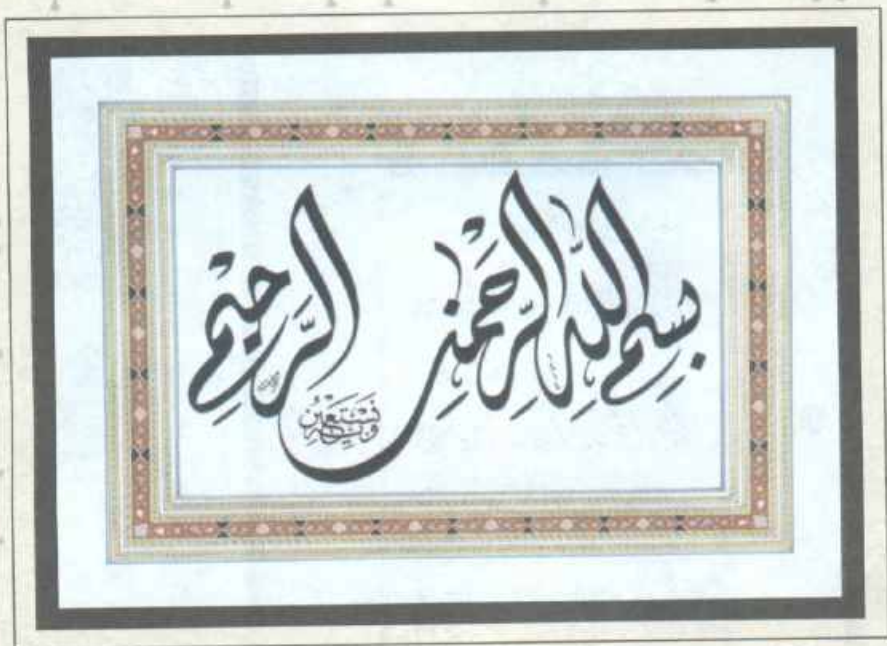 بِسْمِ اللّٰهِ الرَّحْمٰنِ الرَّحِيمِ
وَبِهِ نَسْتَعِيْنُ